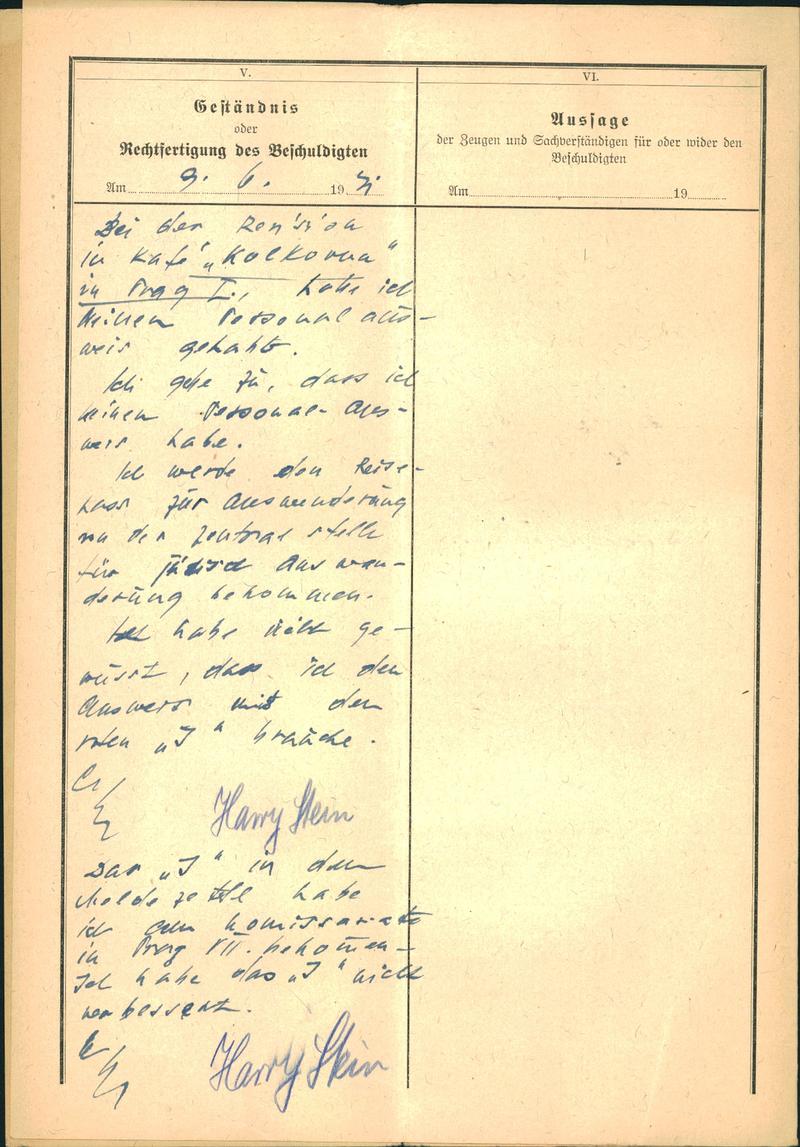 V.
Geständnis
oder
Rechtfertigung des Beschuldigten
Am 9. 6. 19
VI.
Aussage
der Zeugen und Sachverständigen für oder wider den
Beschuldigten
Am 19
Bei der Revision
in Kafé „Kolkovna"
in Prag I., habe ich
keinen Personal aus-
weis gehabt.
Ich gebe zu, dass ich
keinen Personal-Aus-
weis habe.
Ich werde den Reise-
pass für Auswanderung
von der Zentral stelle
für jüdisch Auswan-
derung bekommen.
Ich habe nicht ge-
wusst, dass ich den
Ausweis mit dem
roten „J" brauche.
Harry Stein
Das „J" in dem
Meldezettel habe
ich am Komissariate
in Prag VII. bekommen-
Ich habe das „J" nicht
verbessert.
Harry Stein